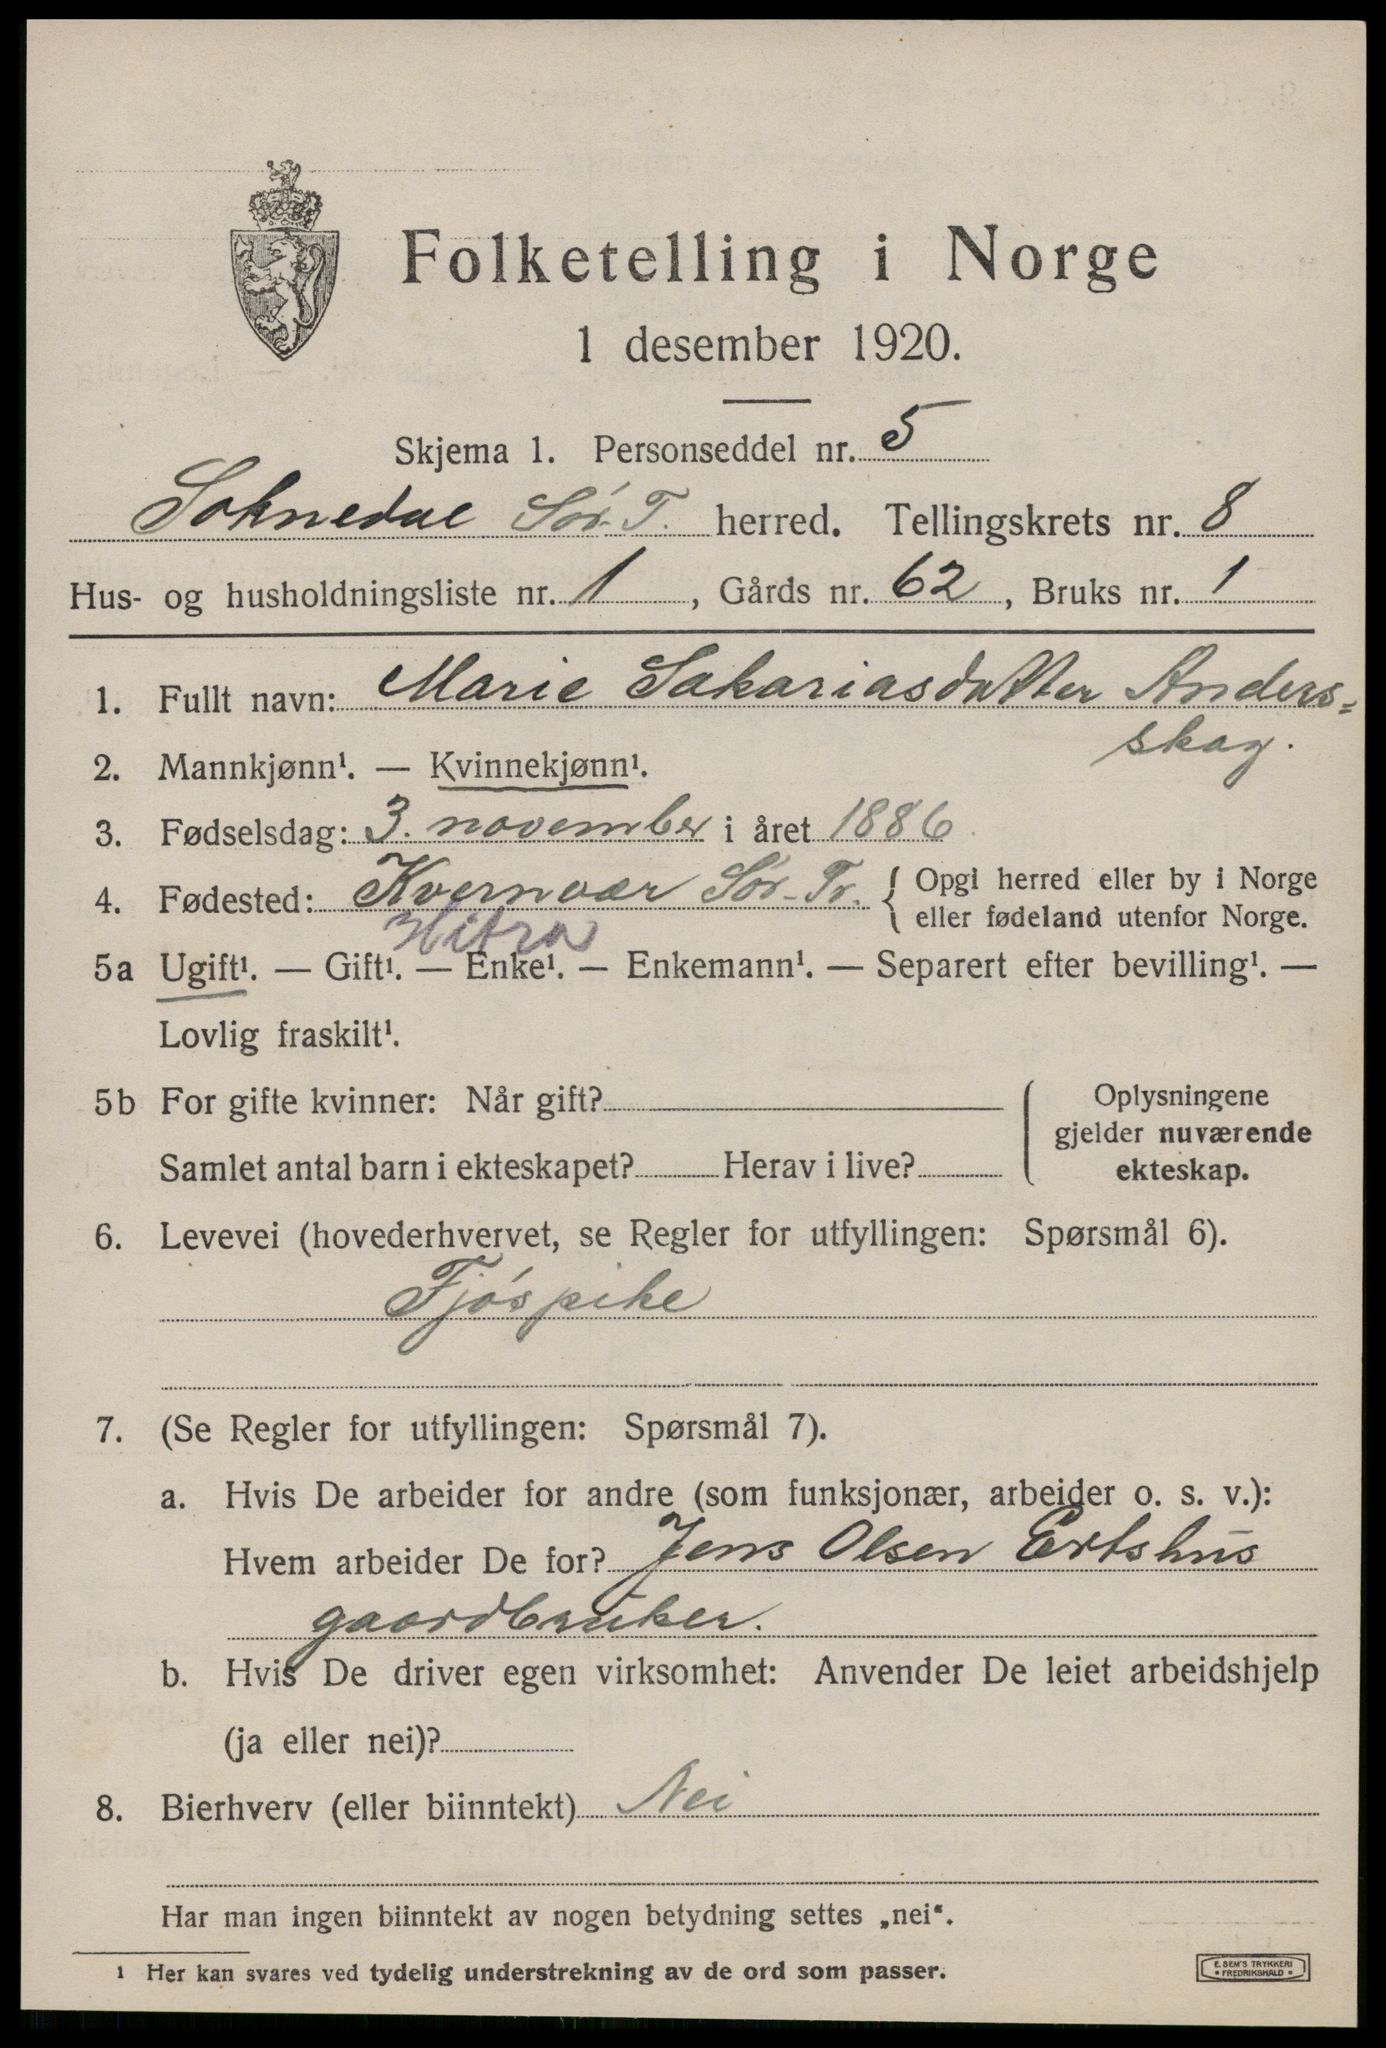 Folketelling i Norge
1 desember 1920.
Skjema 1. Personseddel nr. 5
Soknedal Sór-T. herred. Tellingskrets nr. 8
Hus- og husholdningsliste nr. 1, Gårds nr. 62, Bruks nr. 1
1. Fullt navn: Marie Sakariasdatter Anders=
skag.
2. Mannkjønn¹. — Kvinnekjønn¹.
3. Fødselsdag: 3. november i året 1886.
4. Fødested: Kvernvær Sór-Tr. { Opgi herred eller by i Norge
eller fødeland utenfor Norge.
Hitra
5a Ugift¹. — Gift¹. — Enke¹. — Enkemann¹. — Separert efter bevilling¹. —
Lovlig fraskilt¹.
5b For gifte kvinner: Når gift?
Samlet antal barn i ekteskapet? Herav i live?
Oplysningene
gjelder nuværende
ekteskap.
6. Levevei (hovederhvervet, se Regler for utfyllingen: Spørsmål 6).
Fjóspike
7. (Se Regler for utfyllingen: Spørsmål 7).
a. Hvis De arbeider for andre (som funksjonær, arbeider o. s. v.):
Hvem arbeider De for? Jens Olsen Ertshus
gaardbruker.
b. Hvis De driver egen virksomhet: Anvender De leiet arbeidshjelp
(ja eller nei)?
8. Bierhverv (eller biinntekt) Nei
Har man ingen biinntekt av nogen betydning settes „nei“.
¹ Her kan svares ved tydelig understrekning av de ord som passer.
E. SEM'S TRYKKERI
• FREDRIKSHALD •